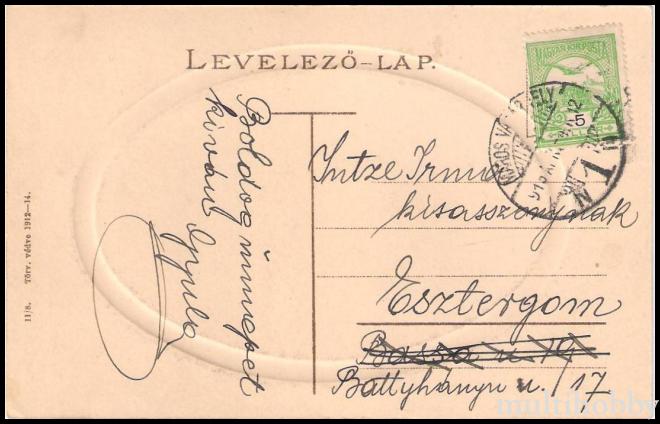 LEVELEZŐ-LAP.
Boldog ünnepet
kíván Gyula
Intze Irma
kisasszonynak
Esztergom
Bassa u. 19
Batthyányi u. 17
MAGYAR KIR. POSTA
5
11/8. Törv. védve 1912—14.
multihobby